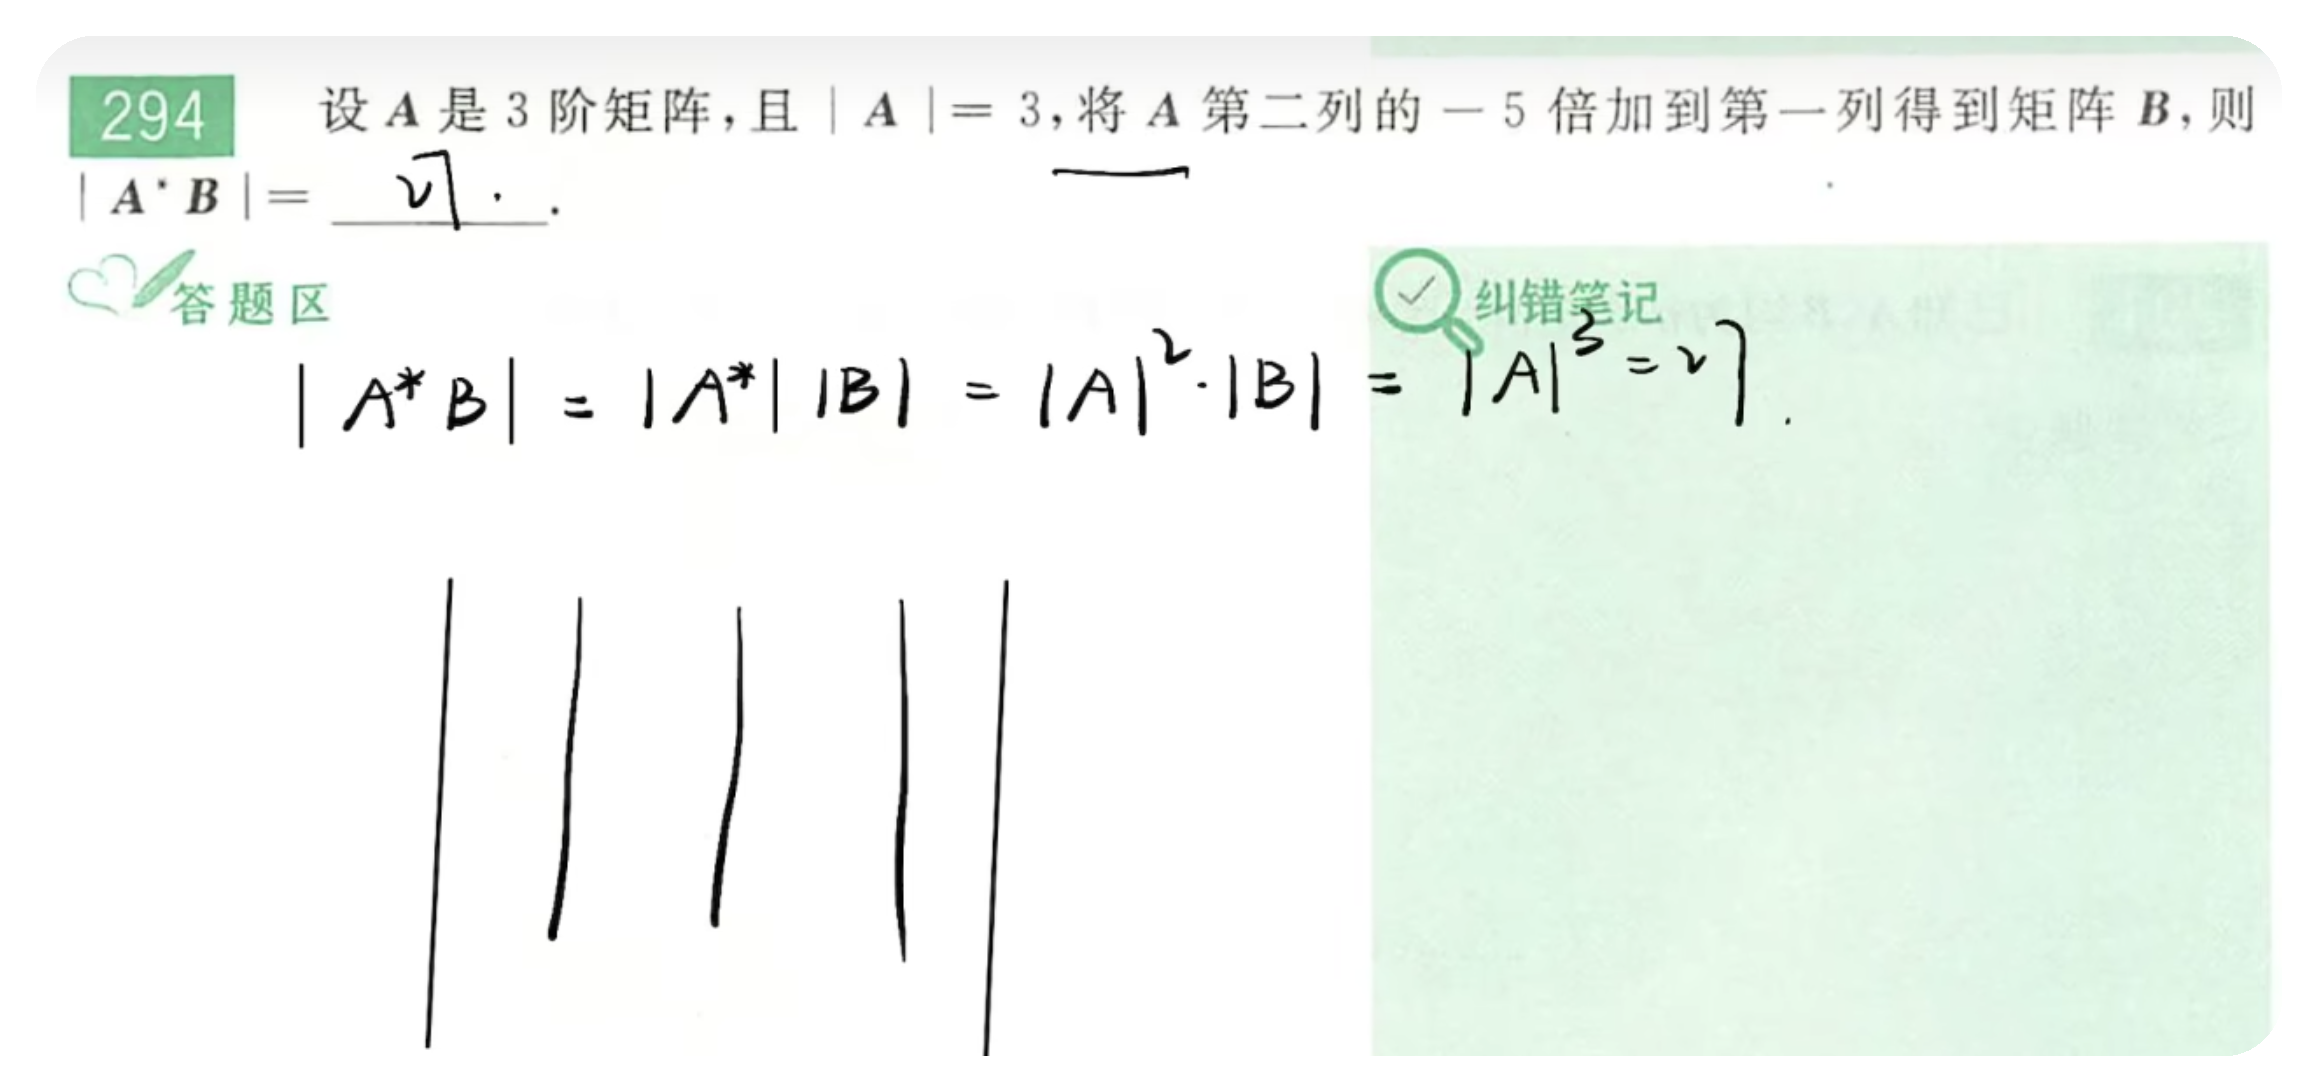 294 设 A 是 3 阶矩阵,且 | A |= 3,将 A 第二列的 － 5 倍加到第一列得到矩阵 B,则
| A* B |= 27.
答题区
纠错笔记
| A* B | = |A*| |B| = |A|² · |B| = |A|³ = 27.